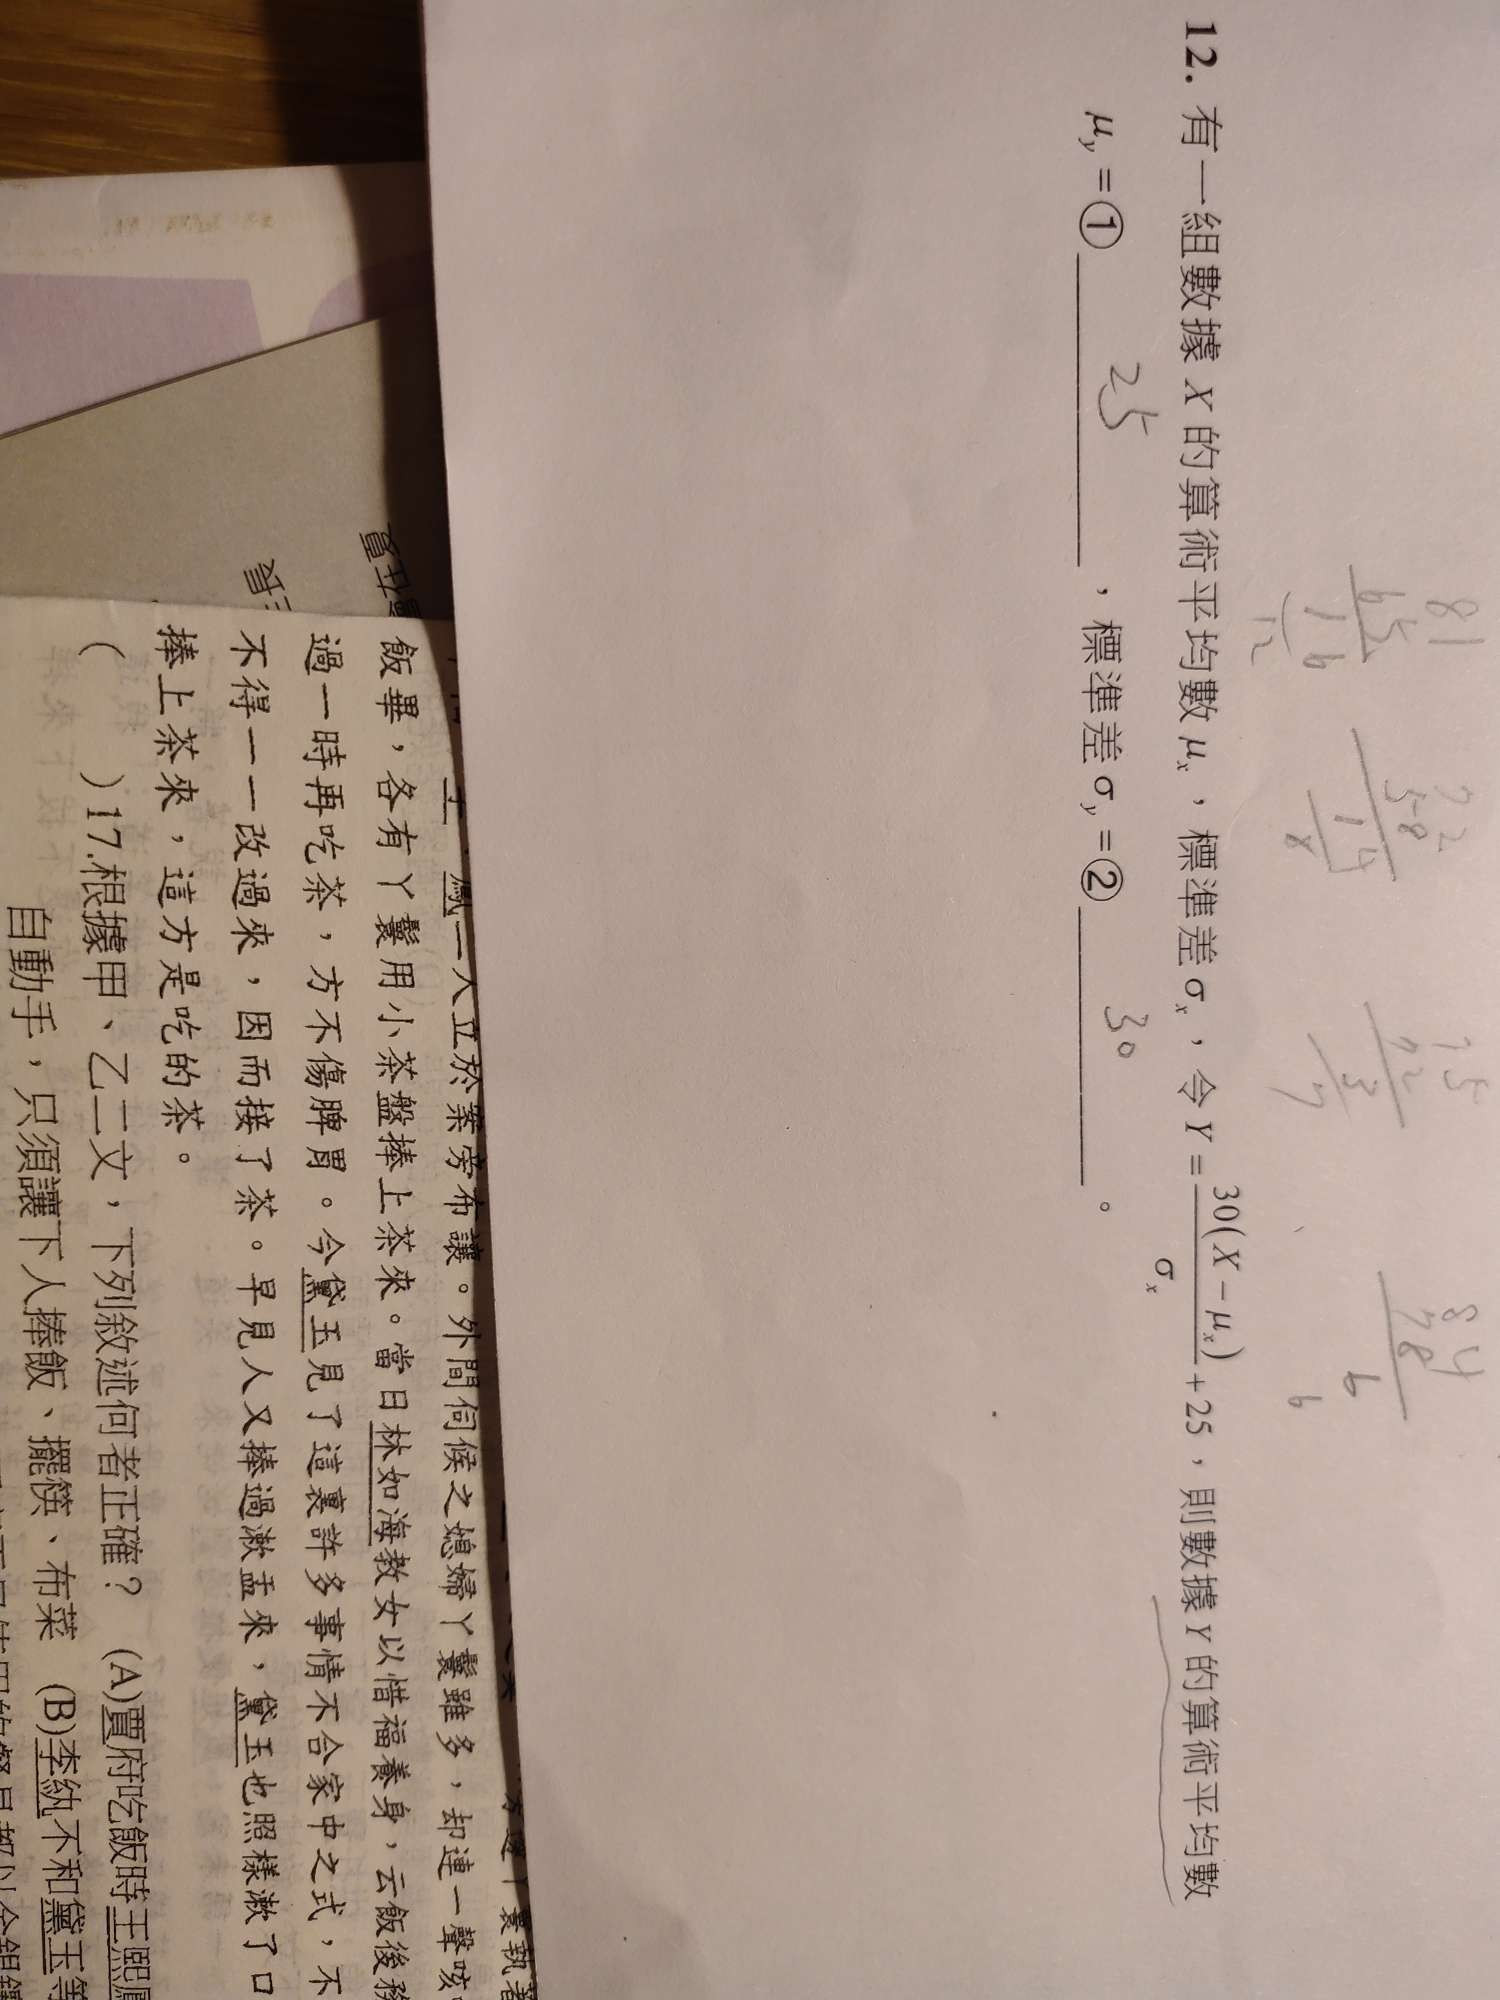 81
65
16
12
72
58
14
8
75
72
3
7
84
78
6
6
12. 有一組數據 X 的算術平均數 μx，標準差 σx，令 Y = 30(X − μx) / σx + 25，則數據 Y 的算術平均數
μy = ① 25 ，標準差 σy = ② 30 。
鳳一人立於案旁布讓。外間伺候之媳婦丫鬟雖多，却連一聲咳
飯畢，各有丫鬟用小茶盤捧上茶來。當日林如海教女以惜福養身，云飯後務
過一時再吃茶，方不傷脾胃。今黛玉見了這裏許多事情不合家中之式，不
不得一一改過來，因而接了茶。早見人又捧過漱盂來，黛玉也照樣漱了口
捧上茶來，這方是吃的茶。
（　　）17.根據甲、乙二文，下列敘述何者正確？ (A)賈府吃飯時王熙鳳
自動手，只須讓下人捧飯、擺筷、布菜 (B)李紈不和黛玉等